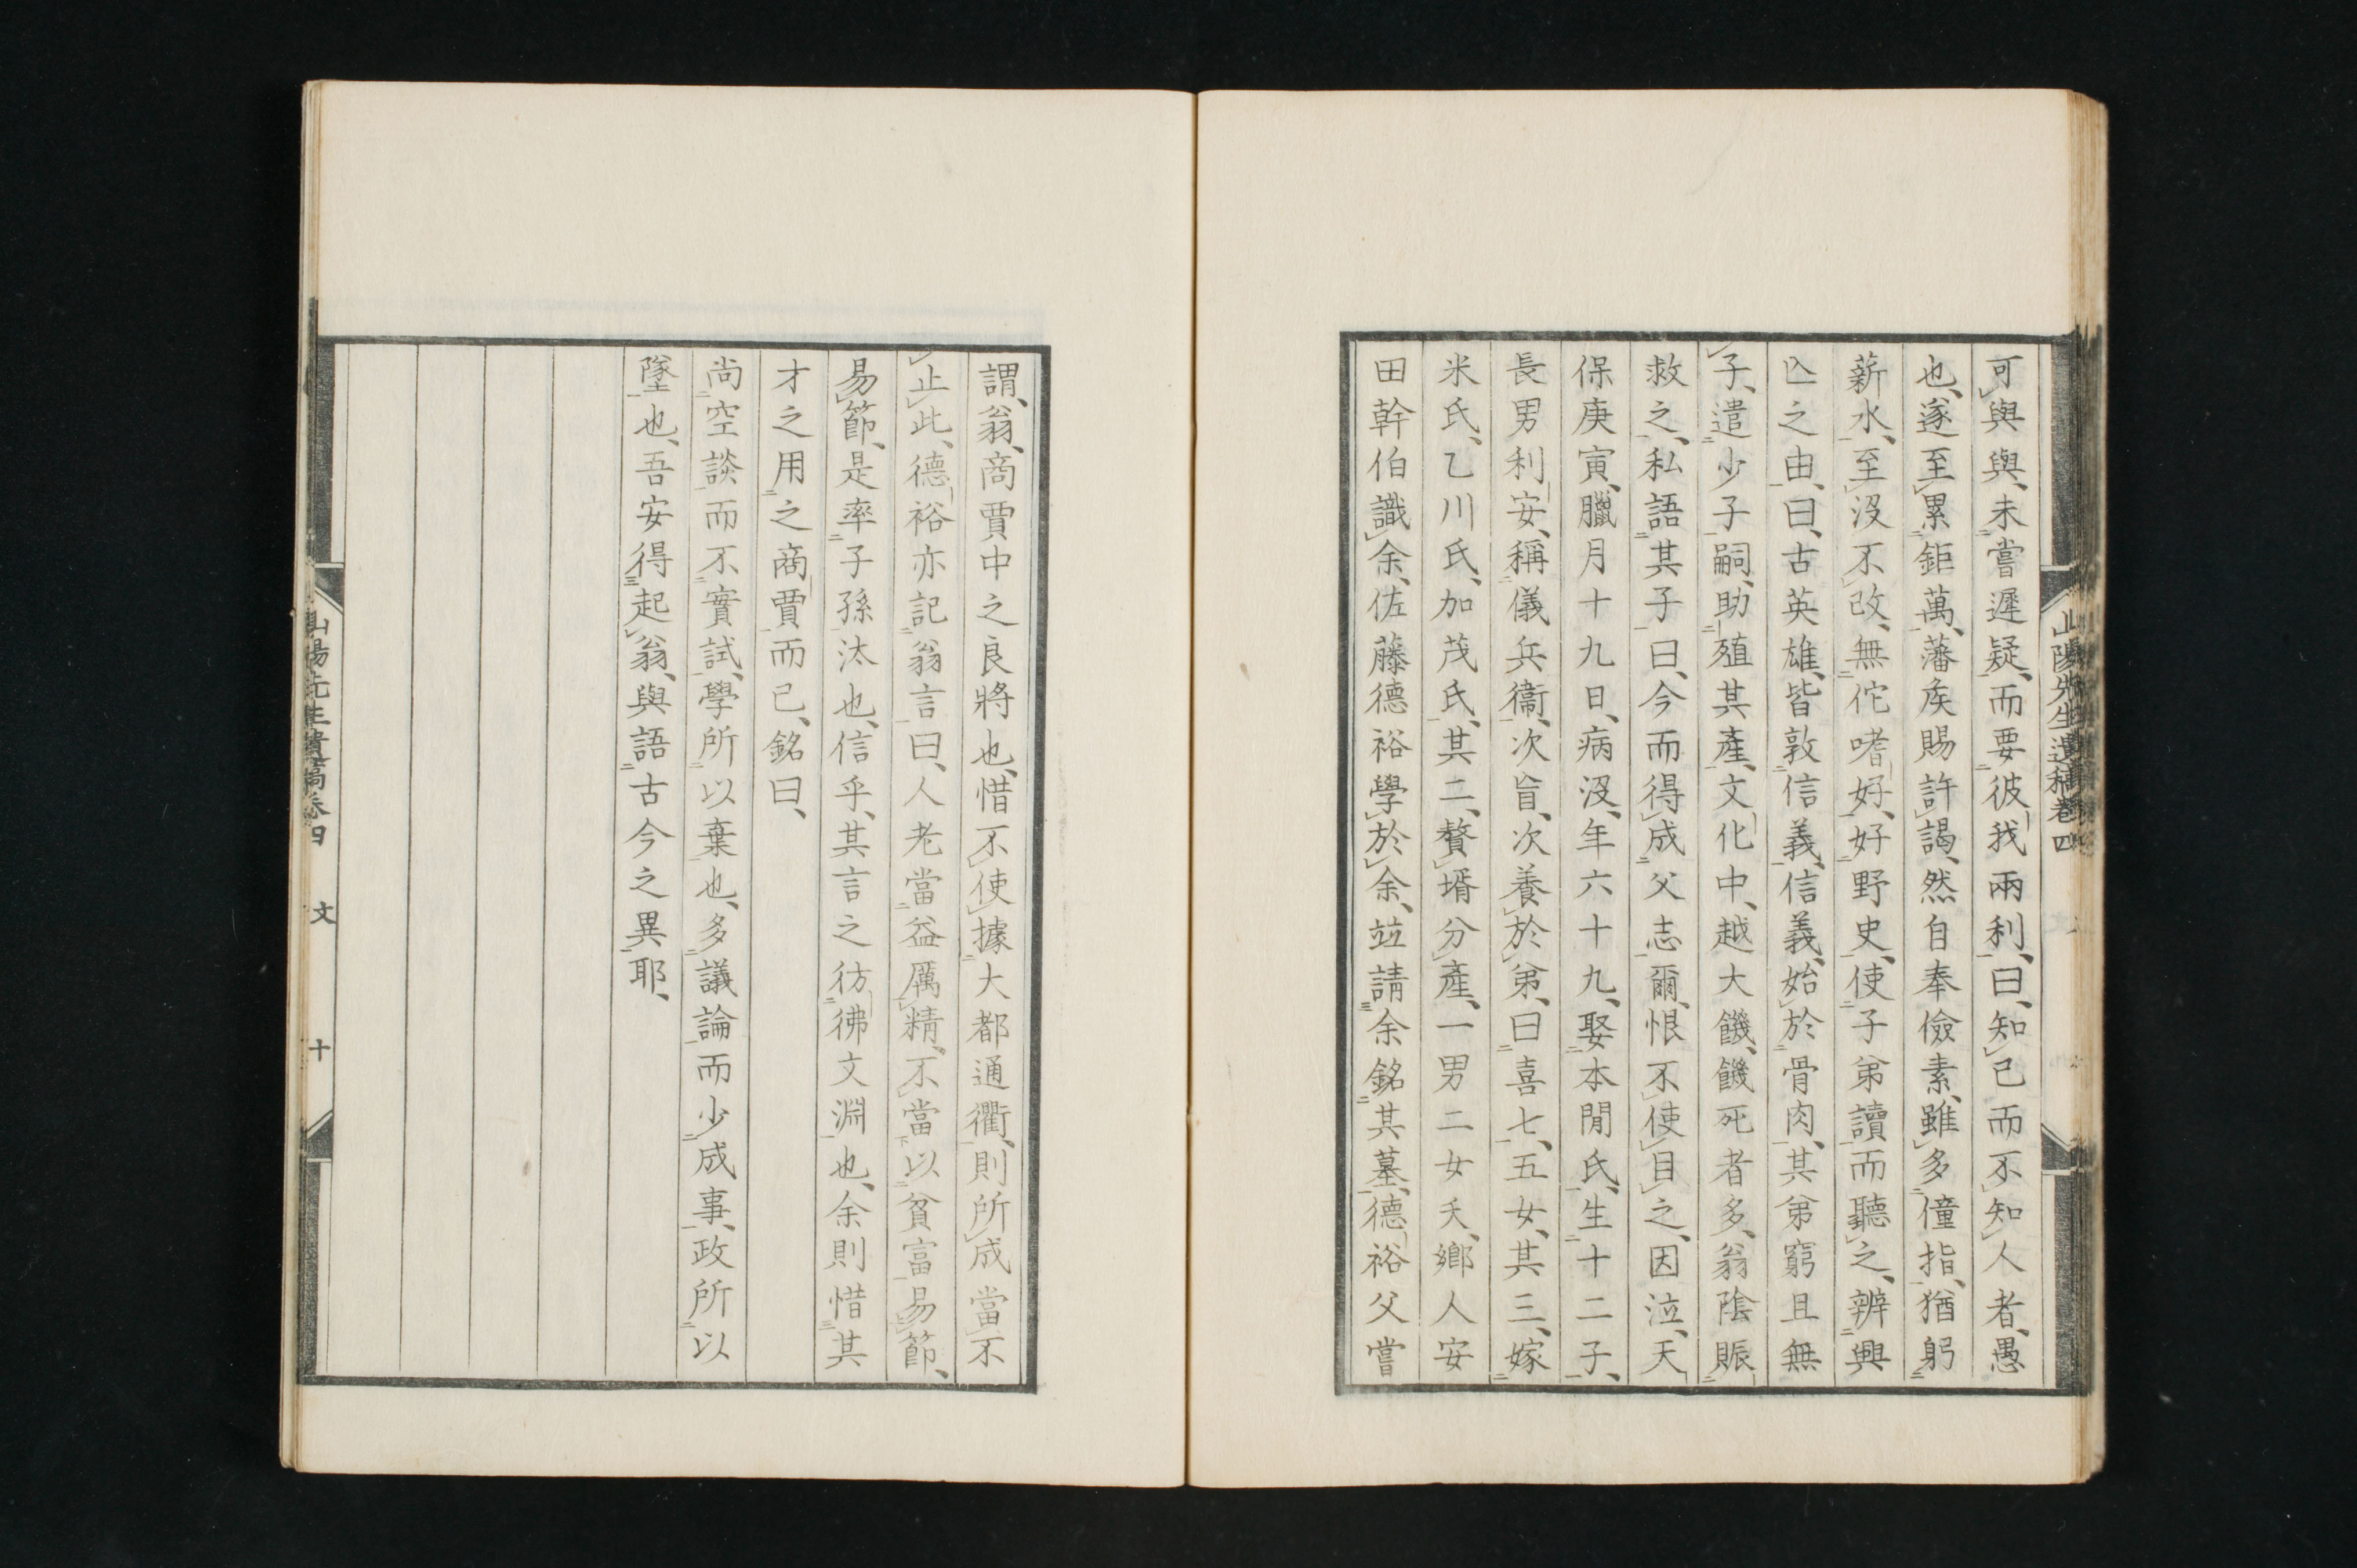 山陽先生遺稿卷四
可與與、未嘗遲疑、而要彼我兩利、曰、知己而不知人者、愚
也、遂至累鉅萬、藩矦賜許謁、然自奉儉素、雖多僮指、猶躬
薪水、至沒不改、無佗嗜好、好野史、使子弟讀而聽之、辨興
亾之由、曰、古英雄、皆敦信義、信義、始於骨肉、其弟窮且無
子、遣少子嗣、助殖其產、文化中、越大饑、饑死者多、翁陰賑
救之、私語其子曰、今而得成父志爾、恨不使目之、因泣、天
保庚寅、臘月十九日、病沒、年六十九、娶本閒氏、生十二子、
長男利安、稱儀兵衞、次旨、次養於弟、曰喜七、五女、其三、嫁
米氏、乙川氏、加茂氏、其二、贅壻分產、一男二女夭、鄉人安
田幹伯識余、佐藤德裕學於余、竝請余銘其墓、德裕父嘗
謂、翁、商賈中之良將也、惜不使據大都通衢、則所成當不
止此、德裕亦記翁言曰、人老當益厲精、不當以貧富易節、
易節、是率子孫汰也、信乎、其言之彷彿文淵也、余則惜其
才之用之商賈而已、銘曰、
尚空談而不實試、學所以棄也、多議論而少成事、政所以
墜也、吾安得起翁、與語古今之異耶、
山陽先生遺稿卷四 文 十